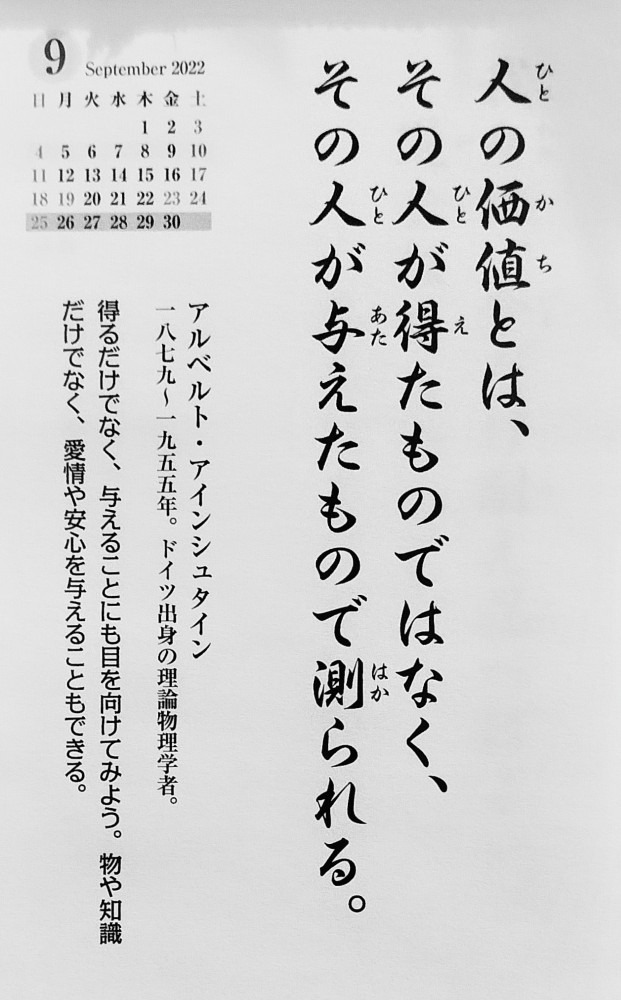 人の価値とは、
その人が得たものではなく、
その人が与えたもので測られる。
ひと
か
ち
ひと
え
ひと
あた
はか
9
September 2022
日 月 火 水 木 金 土
1 2 3
4 5 6 7 8 9 10
11 12 13 14 15 16 17
18 19 20 21 22 23 24
25 26 27 28 29 30
アルベルト・アインシュタイン
一八七九〜一九五五年。ドイツ出身の理論物理学者。
得るだけでなく、与えることにも目を向けてみよう。物や知識
だけでなく、愛情や安心を与えることもできる。